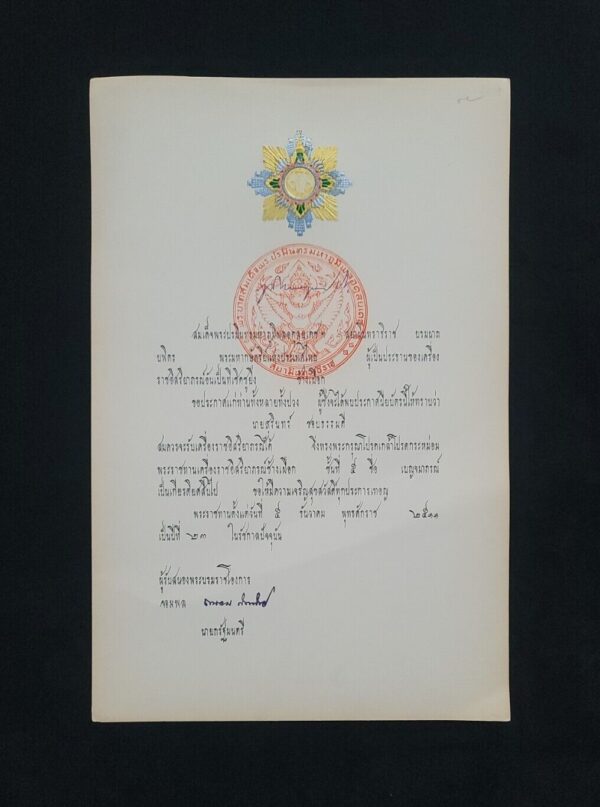 สมเด็จพระปรมินทรมหาภูมิพลอดุลยเดช สยามินทราธิราช บรมนาถ
บพิตร พระมหากษัตริย์แห่งประเทศไทย ผู้เป็นประธานของเครื่อง
ราชอิสริยาภรณ์อันเป็นที่เชิดชูยิ่ง ช้างเผือก
ขอประกาศแก่ท่านทั้งหลายทั้งปวง ผู้ซึ่งได้พบประกาศนียบัตรนี้ให้ทราบว่า
นายสุรินทร์ ชอบธรรมดี
สมควรจะรับเครื่องราชอิสริยาภรณ์ได้ จึ่งทรงพระกรุณาโปรดเกล้าโปรดกระหม่อม
พระราชทานเครื่องราชอิสริยาภรณ์ช้างเผือก ชั้นที่ ๕ ชื่อ เบญจมาภรณ์
เป็นเกียรติยศสืบไป ขอให้มีความเจริญสุขสวัสดิ์ทุกประการเทอญ
พระราชทานตั้งแต่วันที่ ๕ ธันวาคม พุทธศักราช ๒๕๑๑
เป็นปีที่ ๒๓ ในรัชกาลปัจจุบัน
ผู้รับสนองพระบรมราชโองการ
จอมพล
นายกรัฐมนตรี